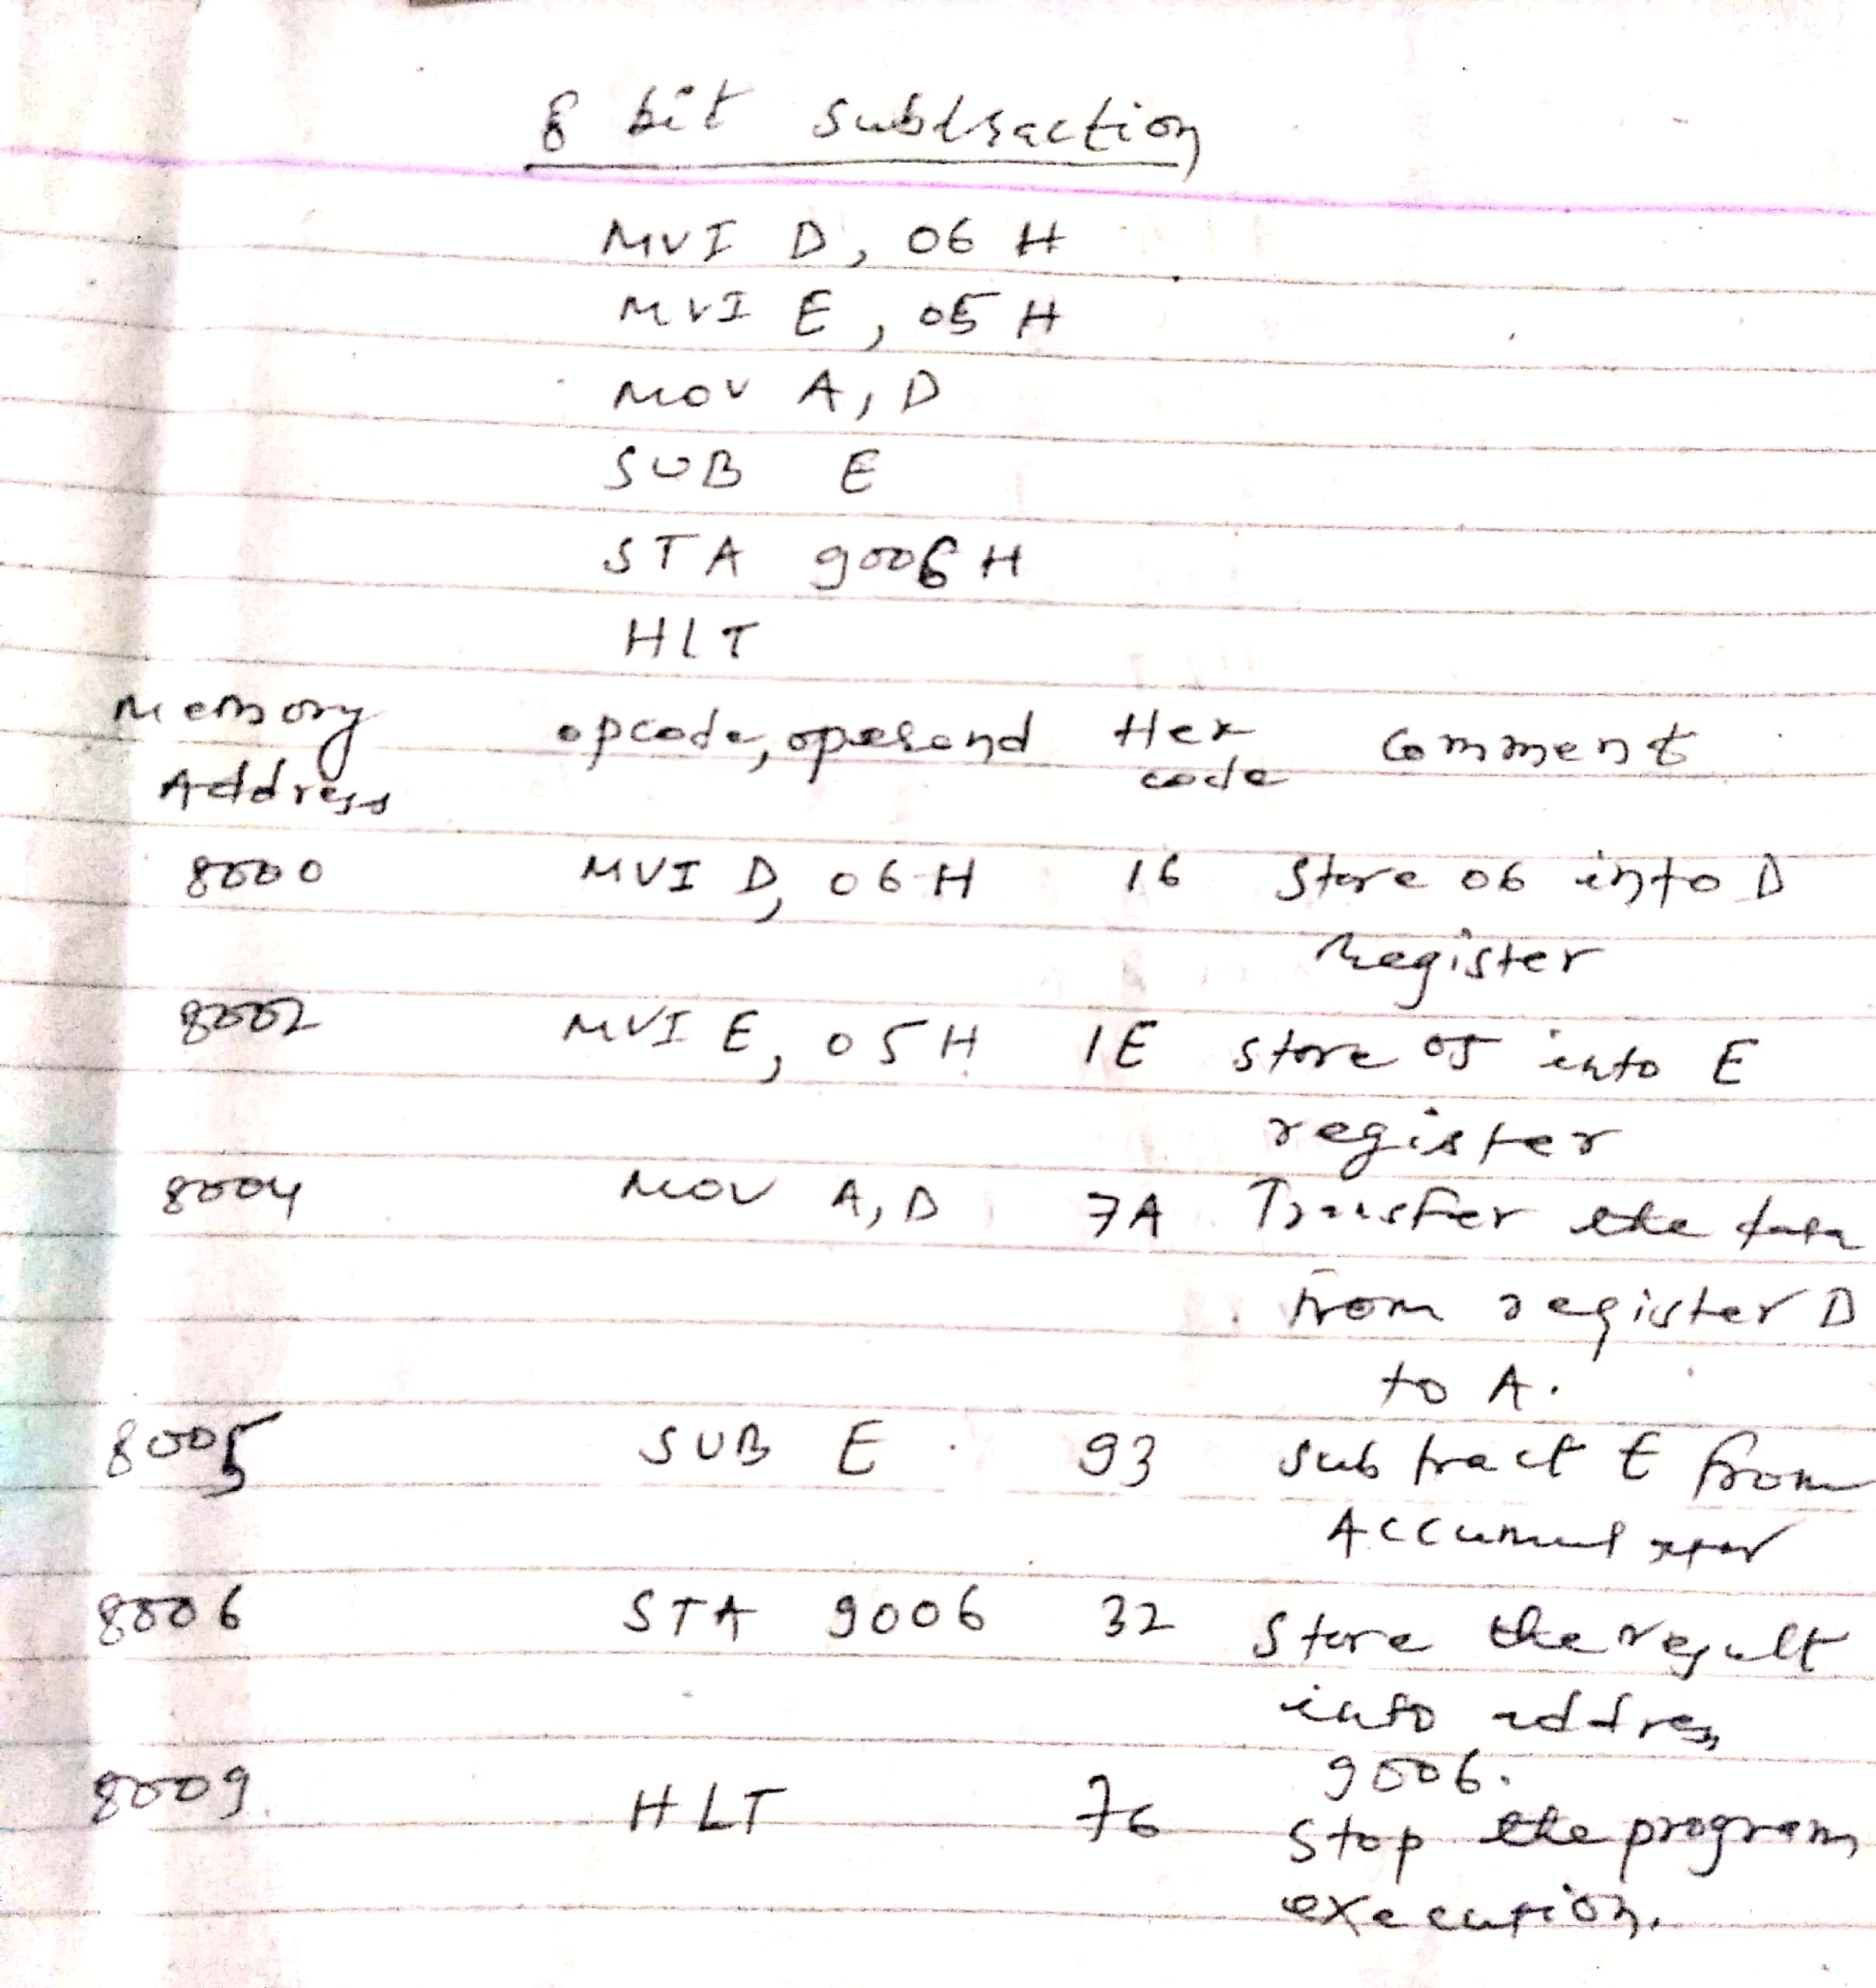 8 bit subtraction
MVI D, 06 H
MVI E, 05 H
MOV A, D
SUB E
STA 9006 H
HLT
Memory Address opcode, operand Hex code Comment
8000 MVI D, 06 H 16 Store 06 into D
Register
8002 MVI E, 05 H 1E store 05 into E
register
8004 MOV A, D 7A Transfer the data
from register D
to A.
8005 SUB E 93 subtract E from
Accumulator
8006 STA 9006 32 Store the result
into address
9006.
8009 HLT 76 Stop the program
execution.